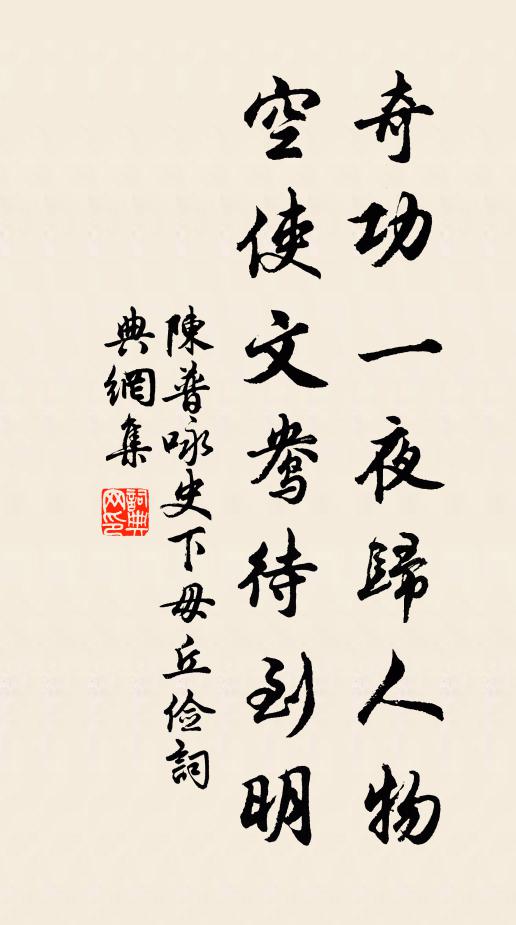 奇功一夜歸人物
空使文鴦待到明
陳普咏史下毋丘儉詞
典網集
詞典網印